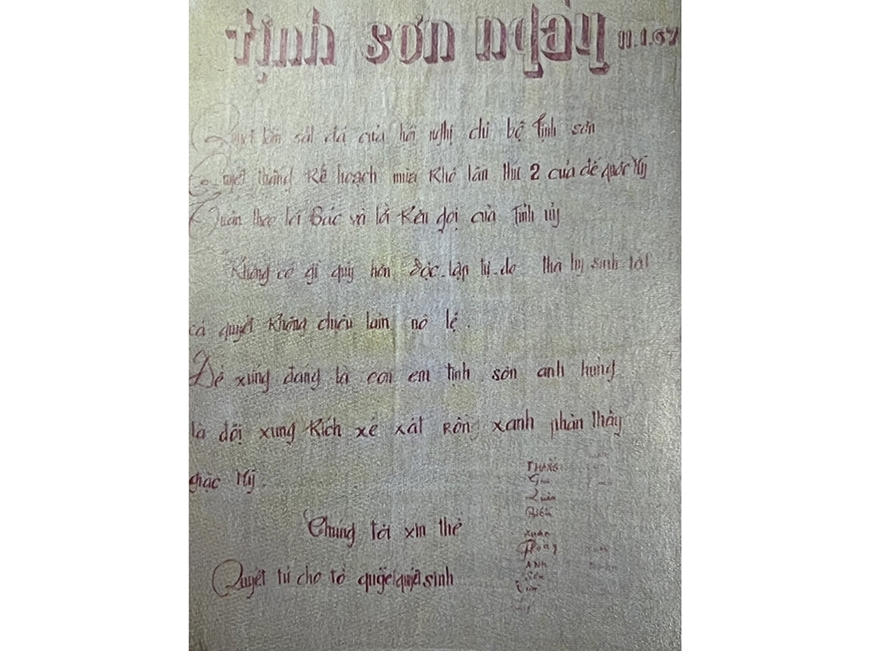 tịnh sơn ngày 11.1.67
Quyết tâm sắt đá của hội nghị chi bộ Tịnh sơn
Quyết thắng Kế hoạch mùa Khô lần thứ 2 của đế quốc Mỹ
Tuân theo lời Bác và lời Kêu gọi của Tỉnh ủy
"Không có gì quý hơn độc lập tự do thà hy sinh tất
cả quyết Không chịu làm nô lệ.
Để xứng đáng là con em tịnh sơn anh hùng
là đội xung Kích xẻ xát Rồng xanh phân thây
giặc Mỹ.
Chúng tôi xin thề
Quyết tử cho tổ quốc quyết sinh
THANG
Xuân
Phong
ANH